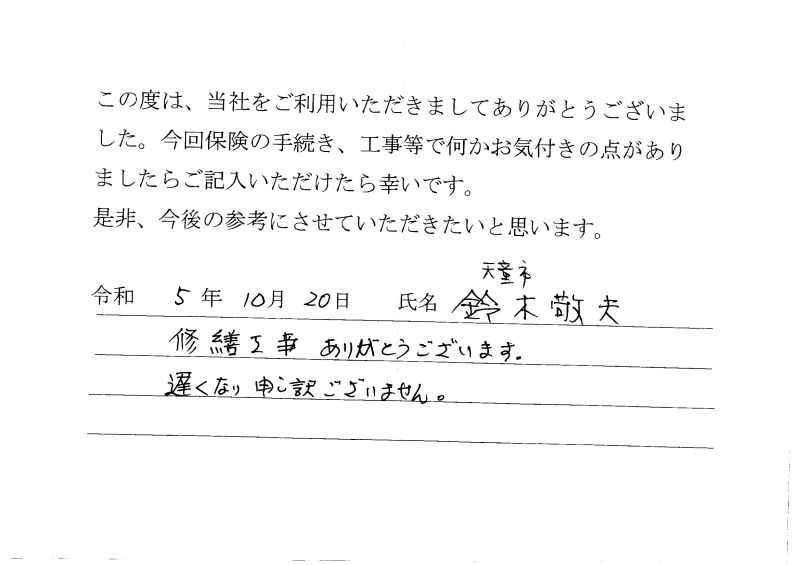 この度は、当社をご利用いただきましてありがとうございま
した。今回保険の手続き、工事等で何かお気付きの点があり
ましたらご記入いただけたら幸いです。
是非、今後の参考にさせていただきたいと思います。
天童市
令和 5年 10月 20日 氏名 鈴木敬夫
修繕工事 ありがとうございます。
遅くなり 申し訳ございません。